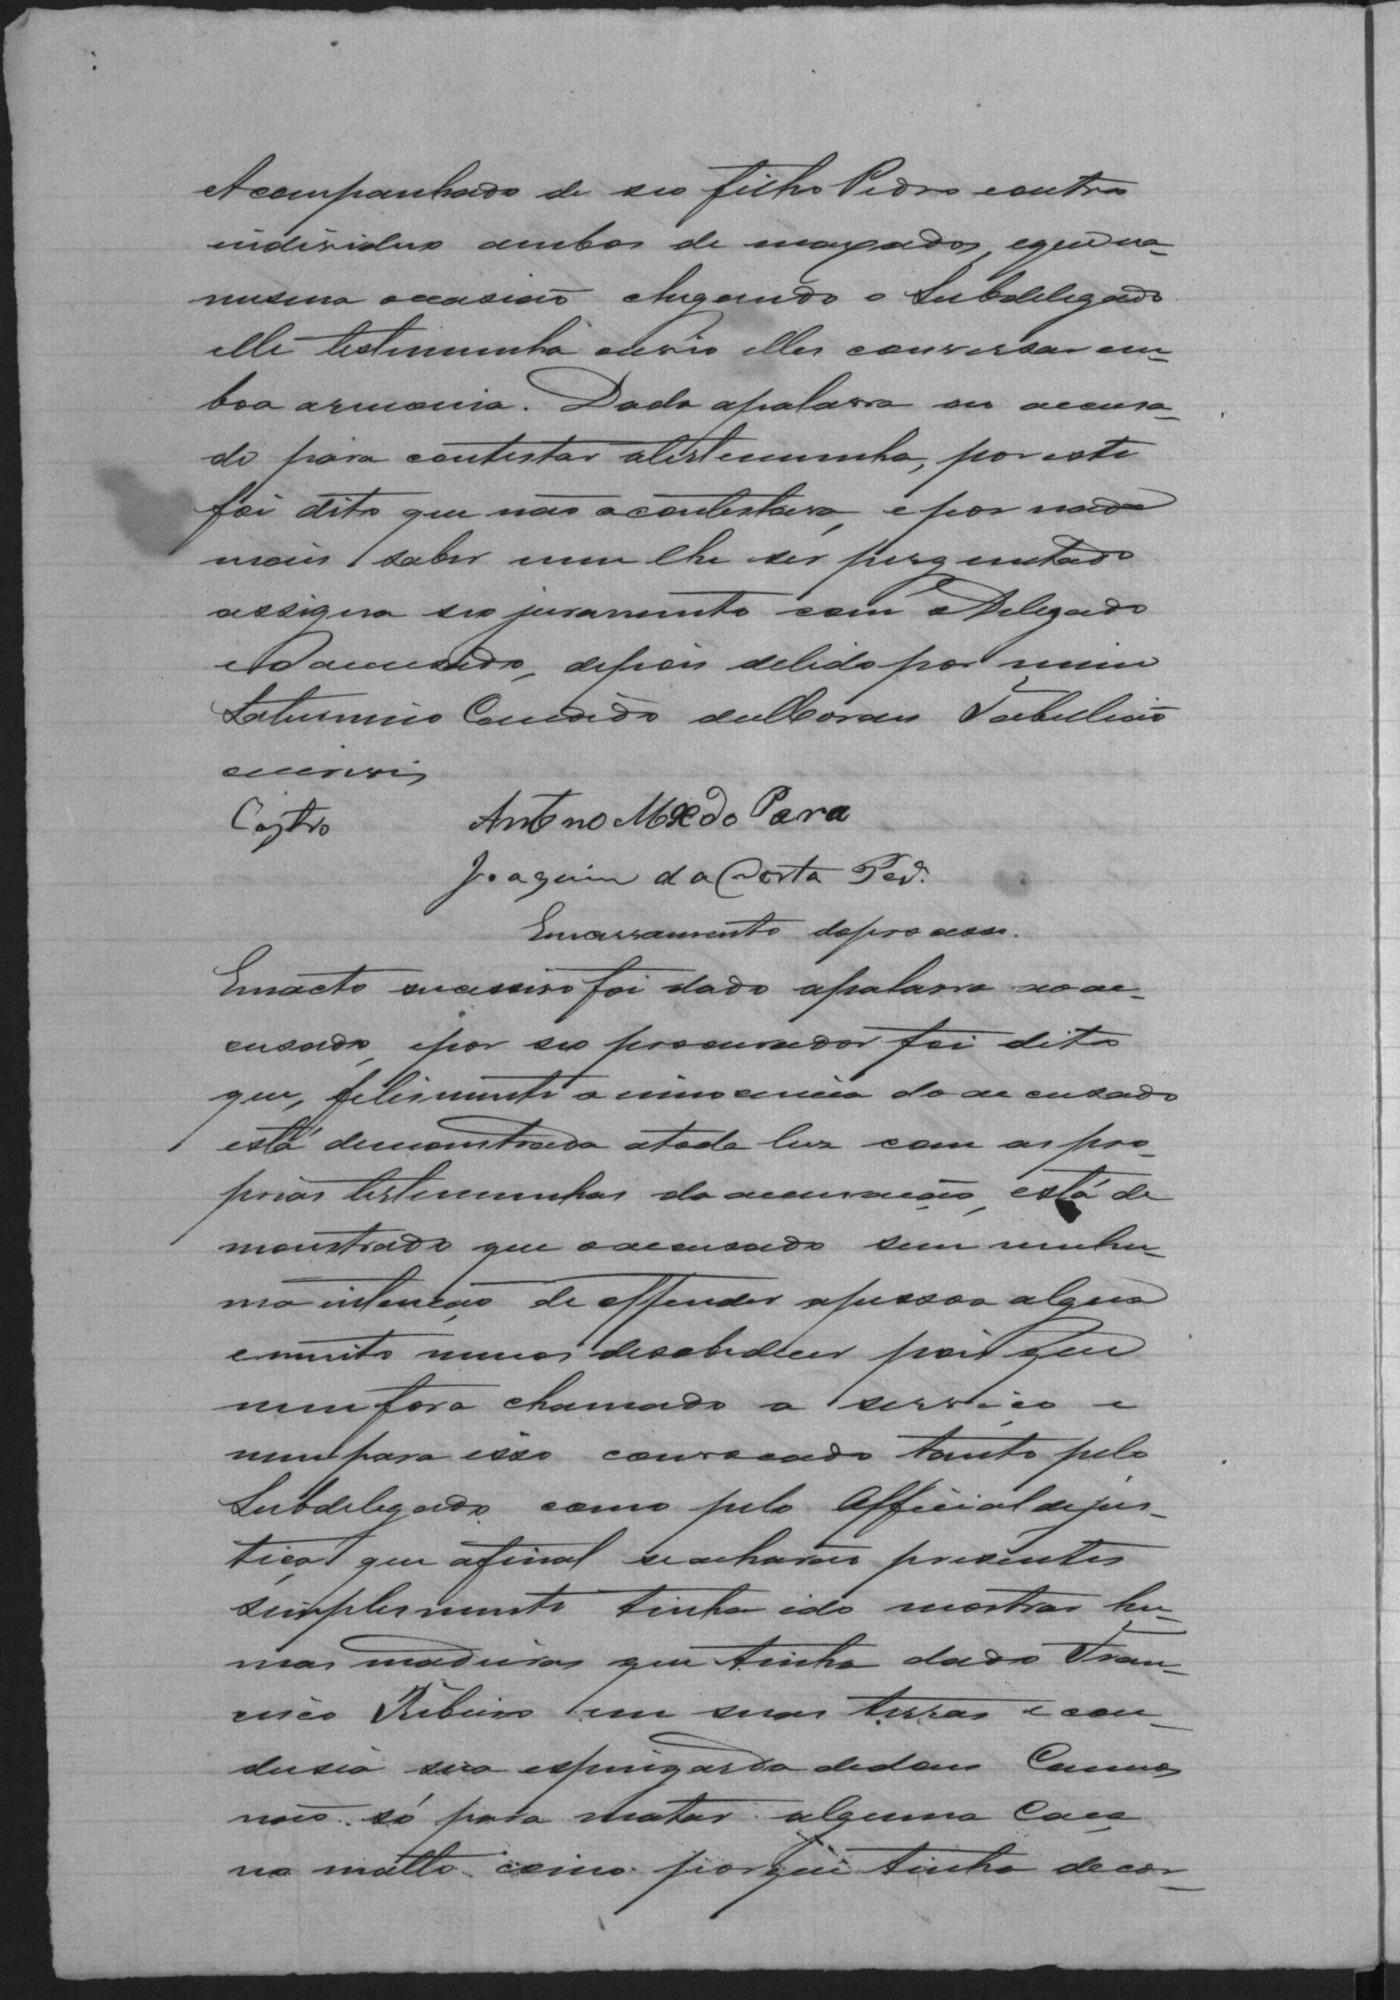 Acompanhado de seo filho Pedro eoutro
individuo ambos de maxados, eque na-
mesma occasião chegando o Subdelegado
elle testemunha ouvio elles conversar em
boa armonia. Dada apalavra ao accusa-
do para contestar atestemunha, por este
foi dito que não acontestava, e por nada
mais saber nem lhe ser perguntado
assigna seo juramento com o Delegado
e o accusado, depois delido por mim
Saturnino Candido de Moraes Tabelião
escrevi
Castro Antono Mxedo Para
Joaquim da Costa Per.ª
Encerramento doprocesso.
Emacto sucessivo foi dado apalavra aoac-
cusado, epor seo procurador foi dito
que, felismente a innocencia do accusado
está demonstrada atoda luz com as pro-
prias testemunhas da accusação, está de
monstrado que oaccusado sem nenhu-
ma intenção de offender apessoa algua
emuito menos desobedecer pois que
nem fora chamado a serviço e
nem para isso convocado tanto pelo
Subdelegado como pelo Official dejus-
tiça que afinal seacharão presentes
simplesmente tinha ido mostrar hu-
mas madeiras que tinha dado Fran-
cisco Ribeiro em suas terras e con-
dusia sua espingarda dedous Cannos
não só para matar alguma Caça
no matto como porque tinha decor-